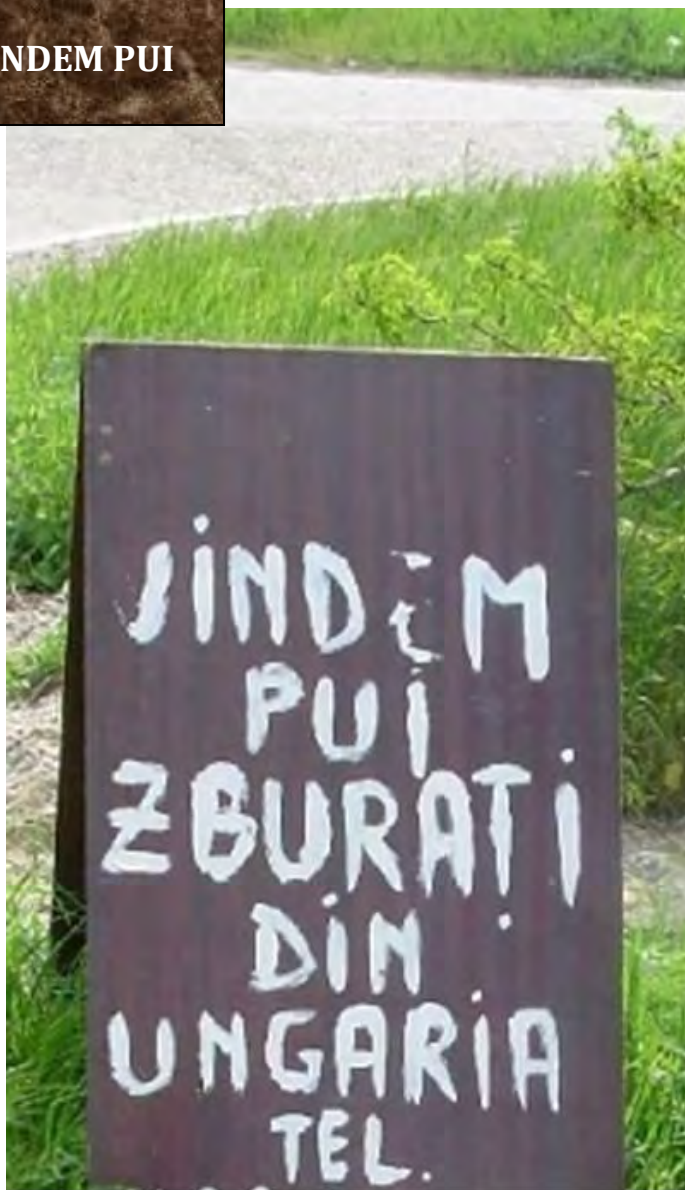 NDEM PUI
JINDEM
PUI
ZBURAȚI
DIN
UNGARIA
TEL.